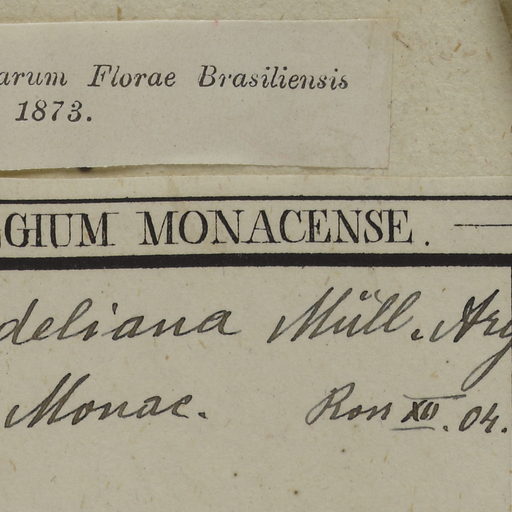 arum Florae Brasiliensis
1873.
GIUM MONACENSE.
deliana Müll. Arg
Monac. Ross XII. 04.